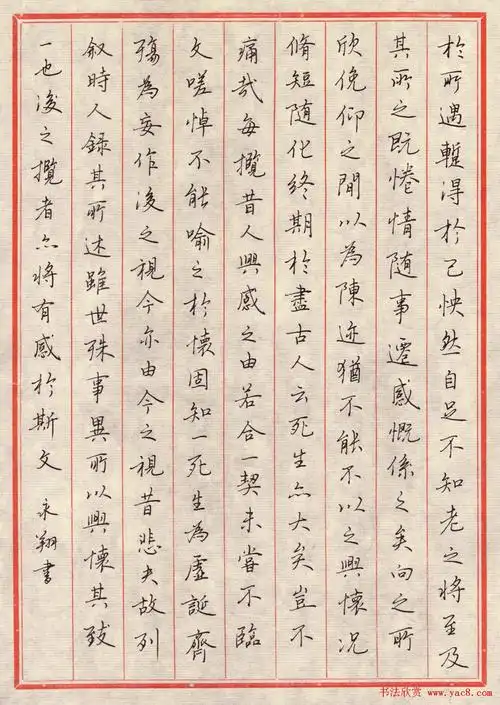 於所遇蹔得於己怏然自足不知老之將至及
其所之既惓情随事遷感慨係之矣向之所
欣俛仰之間以為陳迹猶不能不以之興懷况
脩短随化終期於盡古人云死生亦大矣豈不
痛哉每攬昔人興感之由若合一契未嘗不臨
文嗟悼不能喻之於懷固知一死生為虛誕齊
殤為妄作後之視今亦由今之視昔悲夫故列
叙時人錄其所述雖世殊事異所以興懷其致
一也後之攬者亦將有感於斯文 永翔書
书法欣赏 www.yac8.com